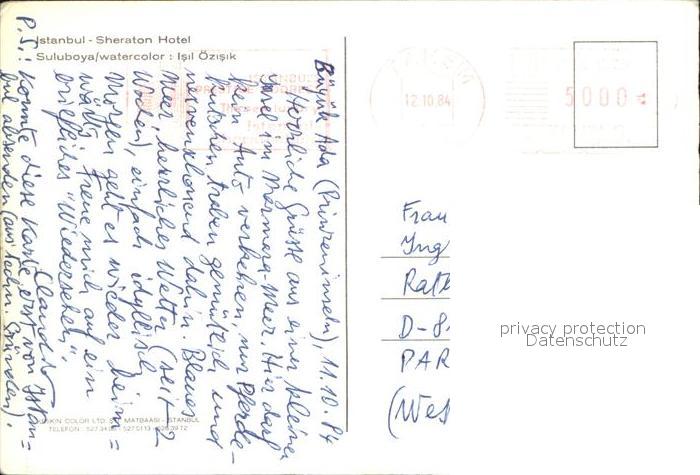 Istanbul - Sheraton Hotel
Suluboya/watercolor : Işıl Özışık
Büyük Ada (Prinzeninseln), 11.10.84
Herzliche Grüsse aus einer kleinen
Insel im Marmara Meer. Hier darf
kein Auto verkehren, nur Pferde-
kutschen traben gemütlich und
nervenschonend dahin. Blaues
Meer, herrliches Wetter (seit 2
Wochen), einfach idyllisch
Morgen geht es wieder heim=
wärts. Freue mich auf ein
briefliches "Wiedersehen".
Claudio
P.S.: Konnte diese Karte erst von Istan=
bul absenden (aus techn. Gründen).
KESKİN COLOR LTD. ŞTİ. MATBAASI - İSTANBUL
TELEFON :
TAKSİM
12.10.84
5000
Frau
Ing
Rath
D-8
PAR
(Wes
privacy protection
Datenschutz